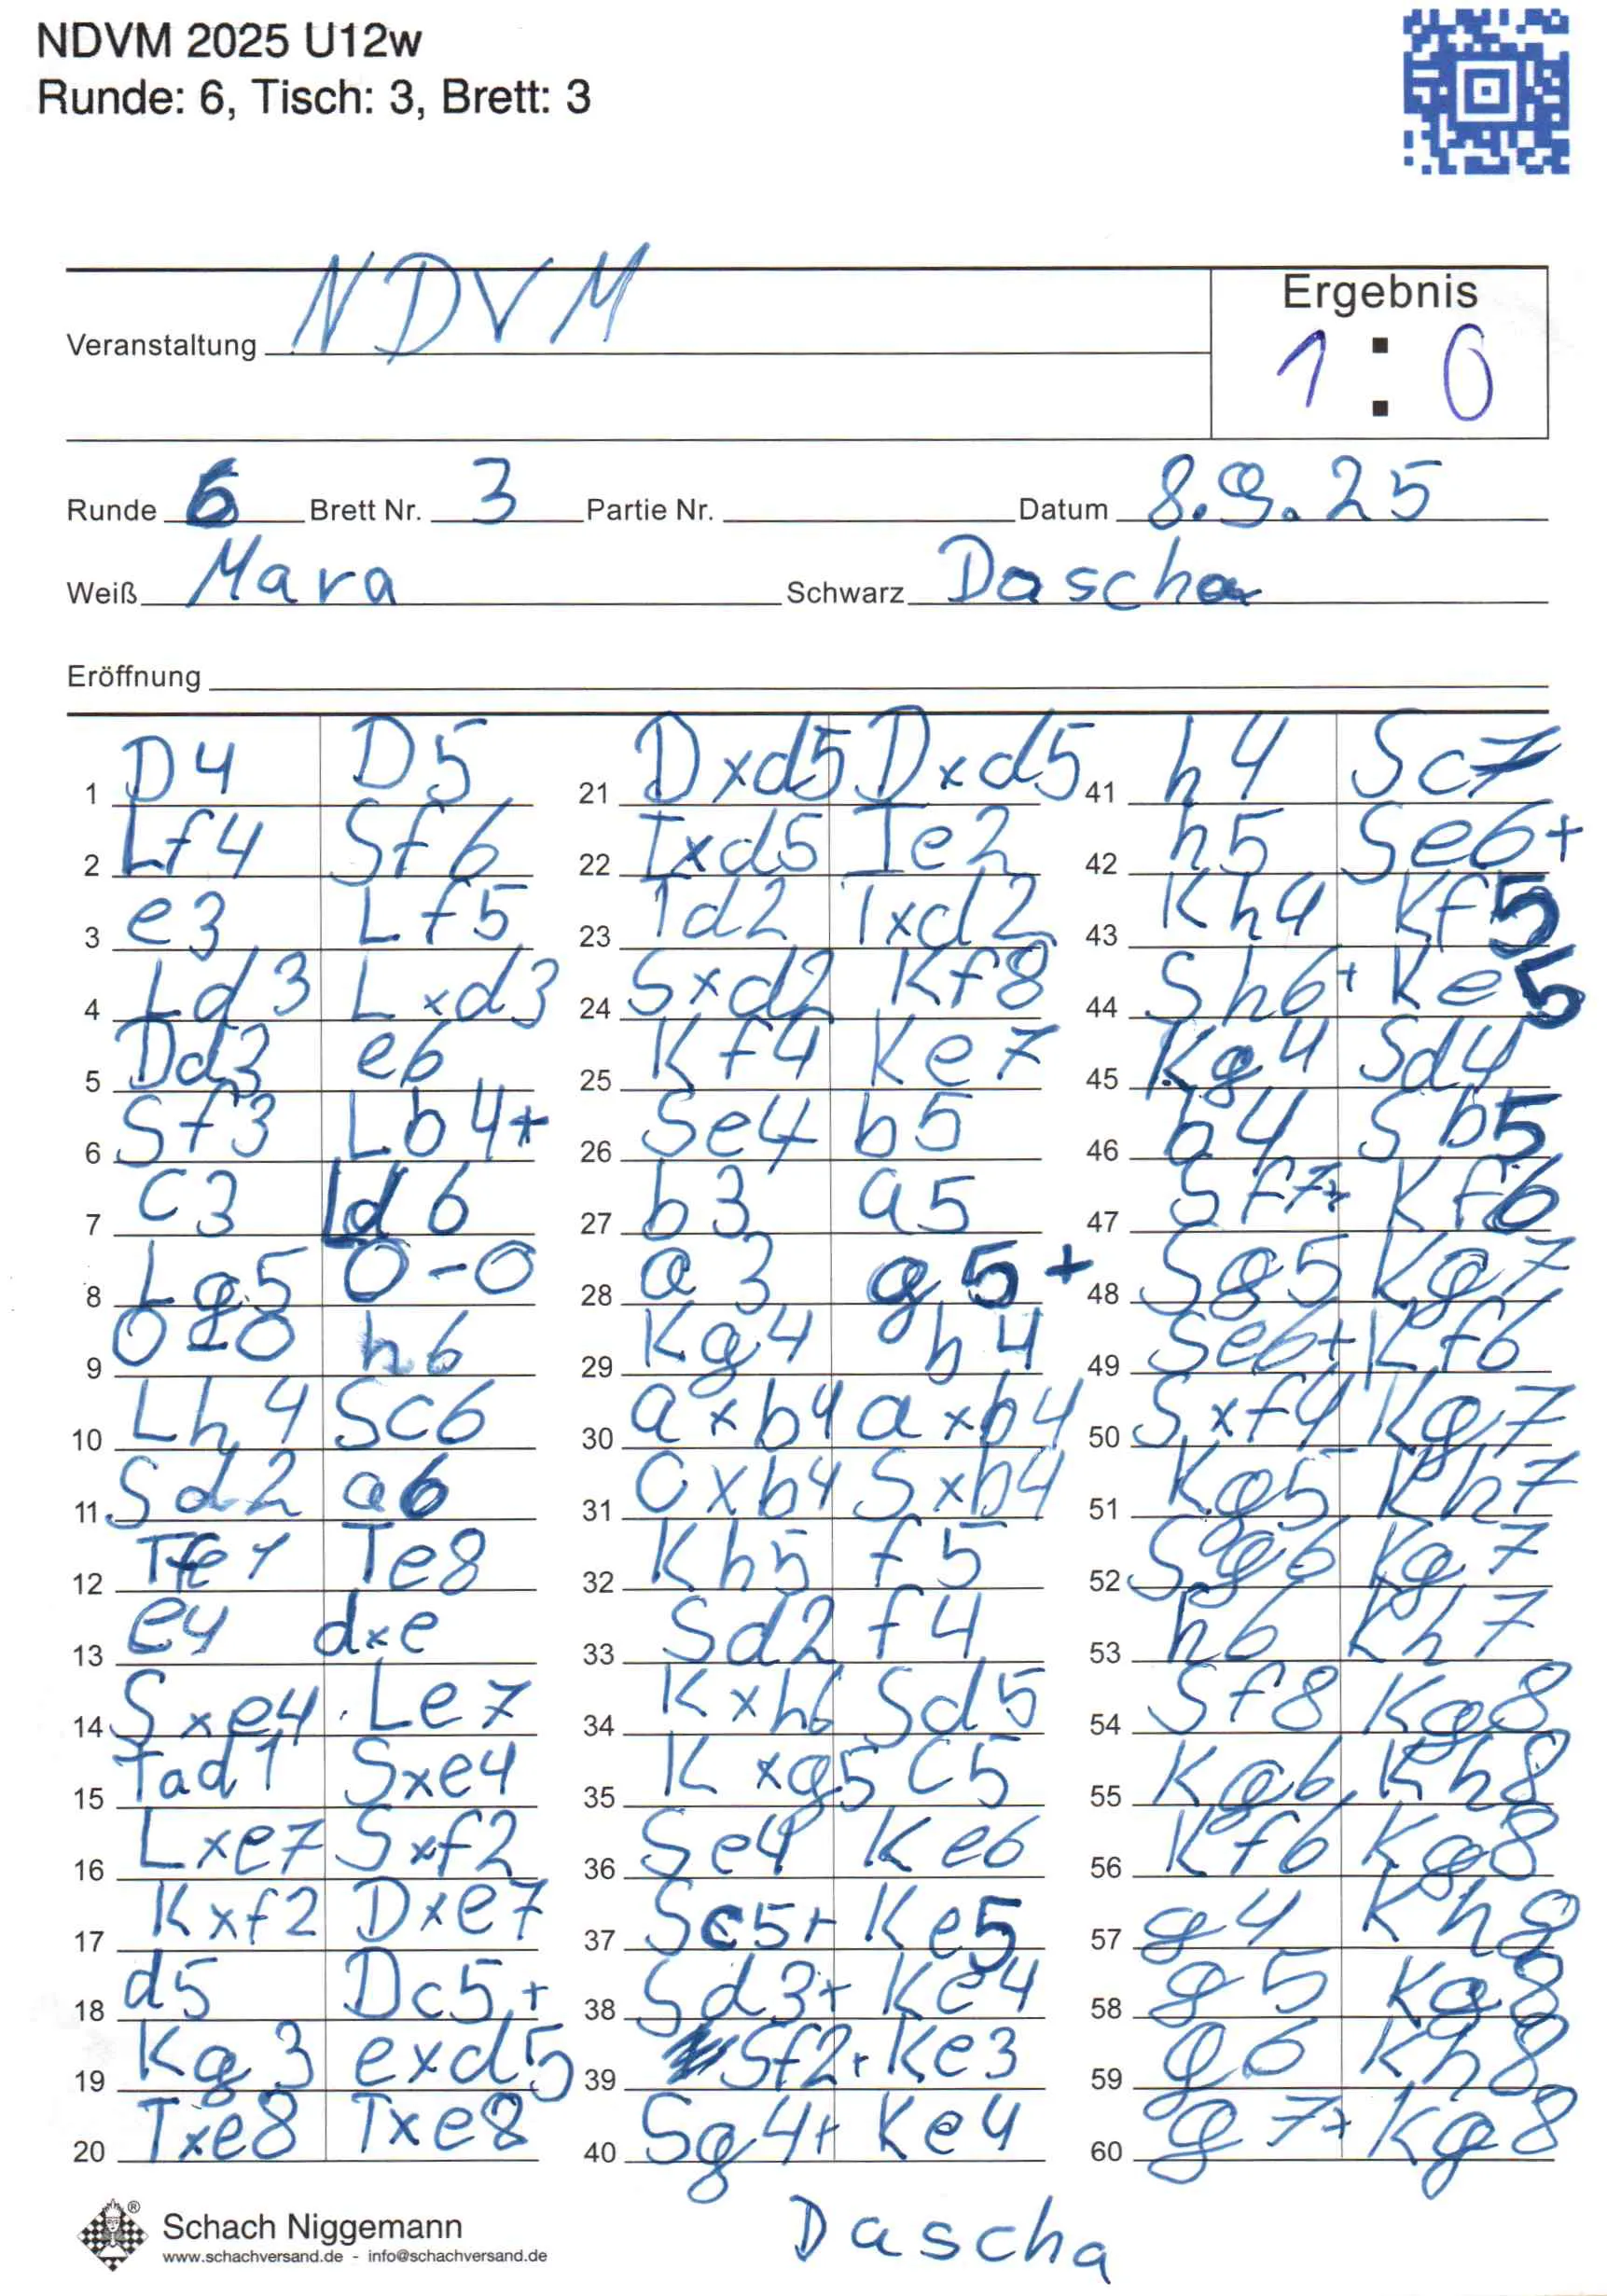 NDVM 2025 U12w
Runde: 6, Tisch: 3, Brett: 3
Veranstaltung NDVM
Ergebnis
1 : 0
Runde 6 Brett Nr. 3 Partie Nr. Datum 8.9.25
Weiß Mara Schwarz Dascha
Eröffnung
1 D4 D5
2 Lf4 Sf6
3 e3 Lf5
4 Ld3 Lxd3
5 Dd3 e6
6 Sf3 Lb4+
7 C3 Ld6
8 Lg5 0-0
9 0-0 h6
10 Lh4 Sc6
11 Sd2 a6
12 Tfe1 Te8
13 e4 dxe
14 Sxe4 Le7
15 Tad1 Sxe4
16 Lxe7 Sxf2
17 Kxf2 Dxe7
18 d5 Dc5+
19 Kg3 exd5
20 Txe8 Txe8
21 Dxd5 Dxd5
22 Txd5 Te2
23 Td2 Txd2
24 Sxd2 Kf8
25 Kf4 Ke7
26 Se4 b5
27 b3 a5
28 a3 g5+
29 Kg4 b4
30 axb4 axb4
31 Cxb4 Sxb4
32 Kh5 f5
33 Sd2 f4
34 Kxh6 Sd5
35 Kxg5 C5
36 Se4 Ke6
37 Sc5+ Ke5
38 Sd3+ Ke4
39 Sf2+ Ke3
40 Sg4+ Ke4
41 h4 Sc7
42 h5 Se6+
43 Kh4 Kf5
44 Sh6+ Ke5
45 Kg4 Sd4
46 b4 Sb5
47 Sf7+ Kf6
48 Sg5 Kg7
49 Se6+ Kf6
50 Sxf4 Kg7
51 Kg5 Kh7
52 Sg6 Kg7
53 h6 Kh7
54 Sf8 Kg8
55 Kg6 Kh8
56 Kf6 Kg8
57 g4 Kh8
58 g5 Kg8
59 g6 Kh8
60 g7+ Kg8
Schach Niggemann
www.schachversand.de - info@schachversand.de
Dascha